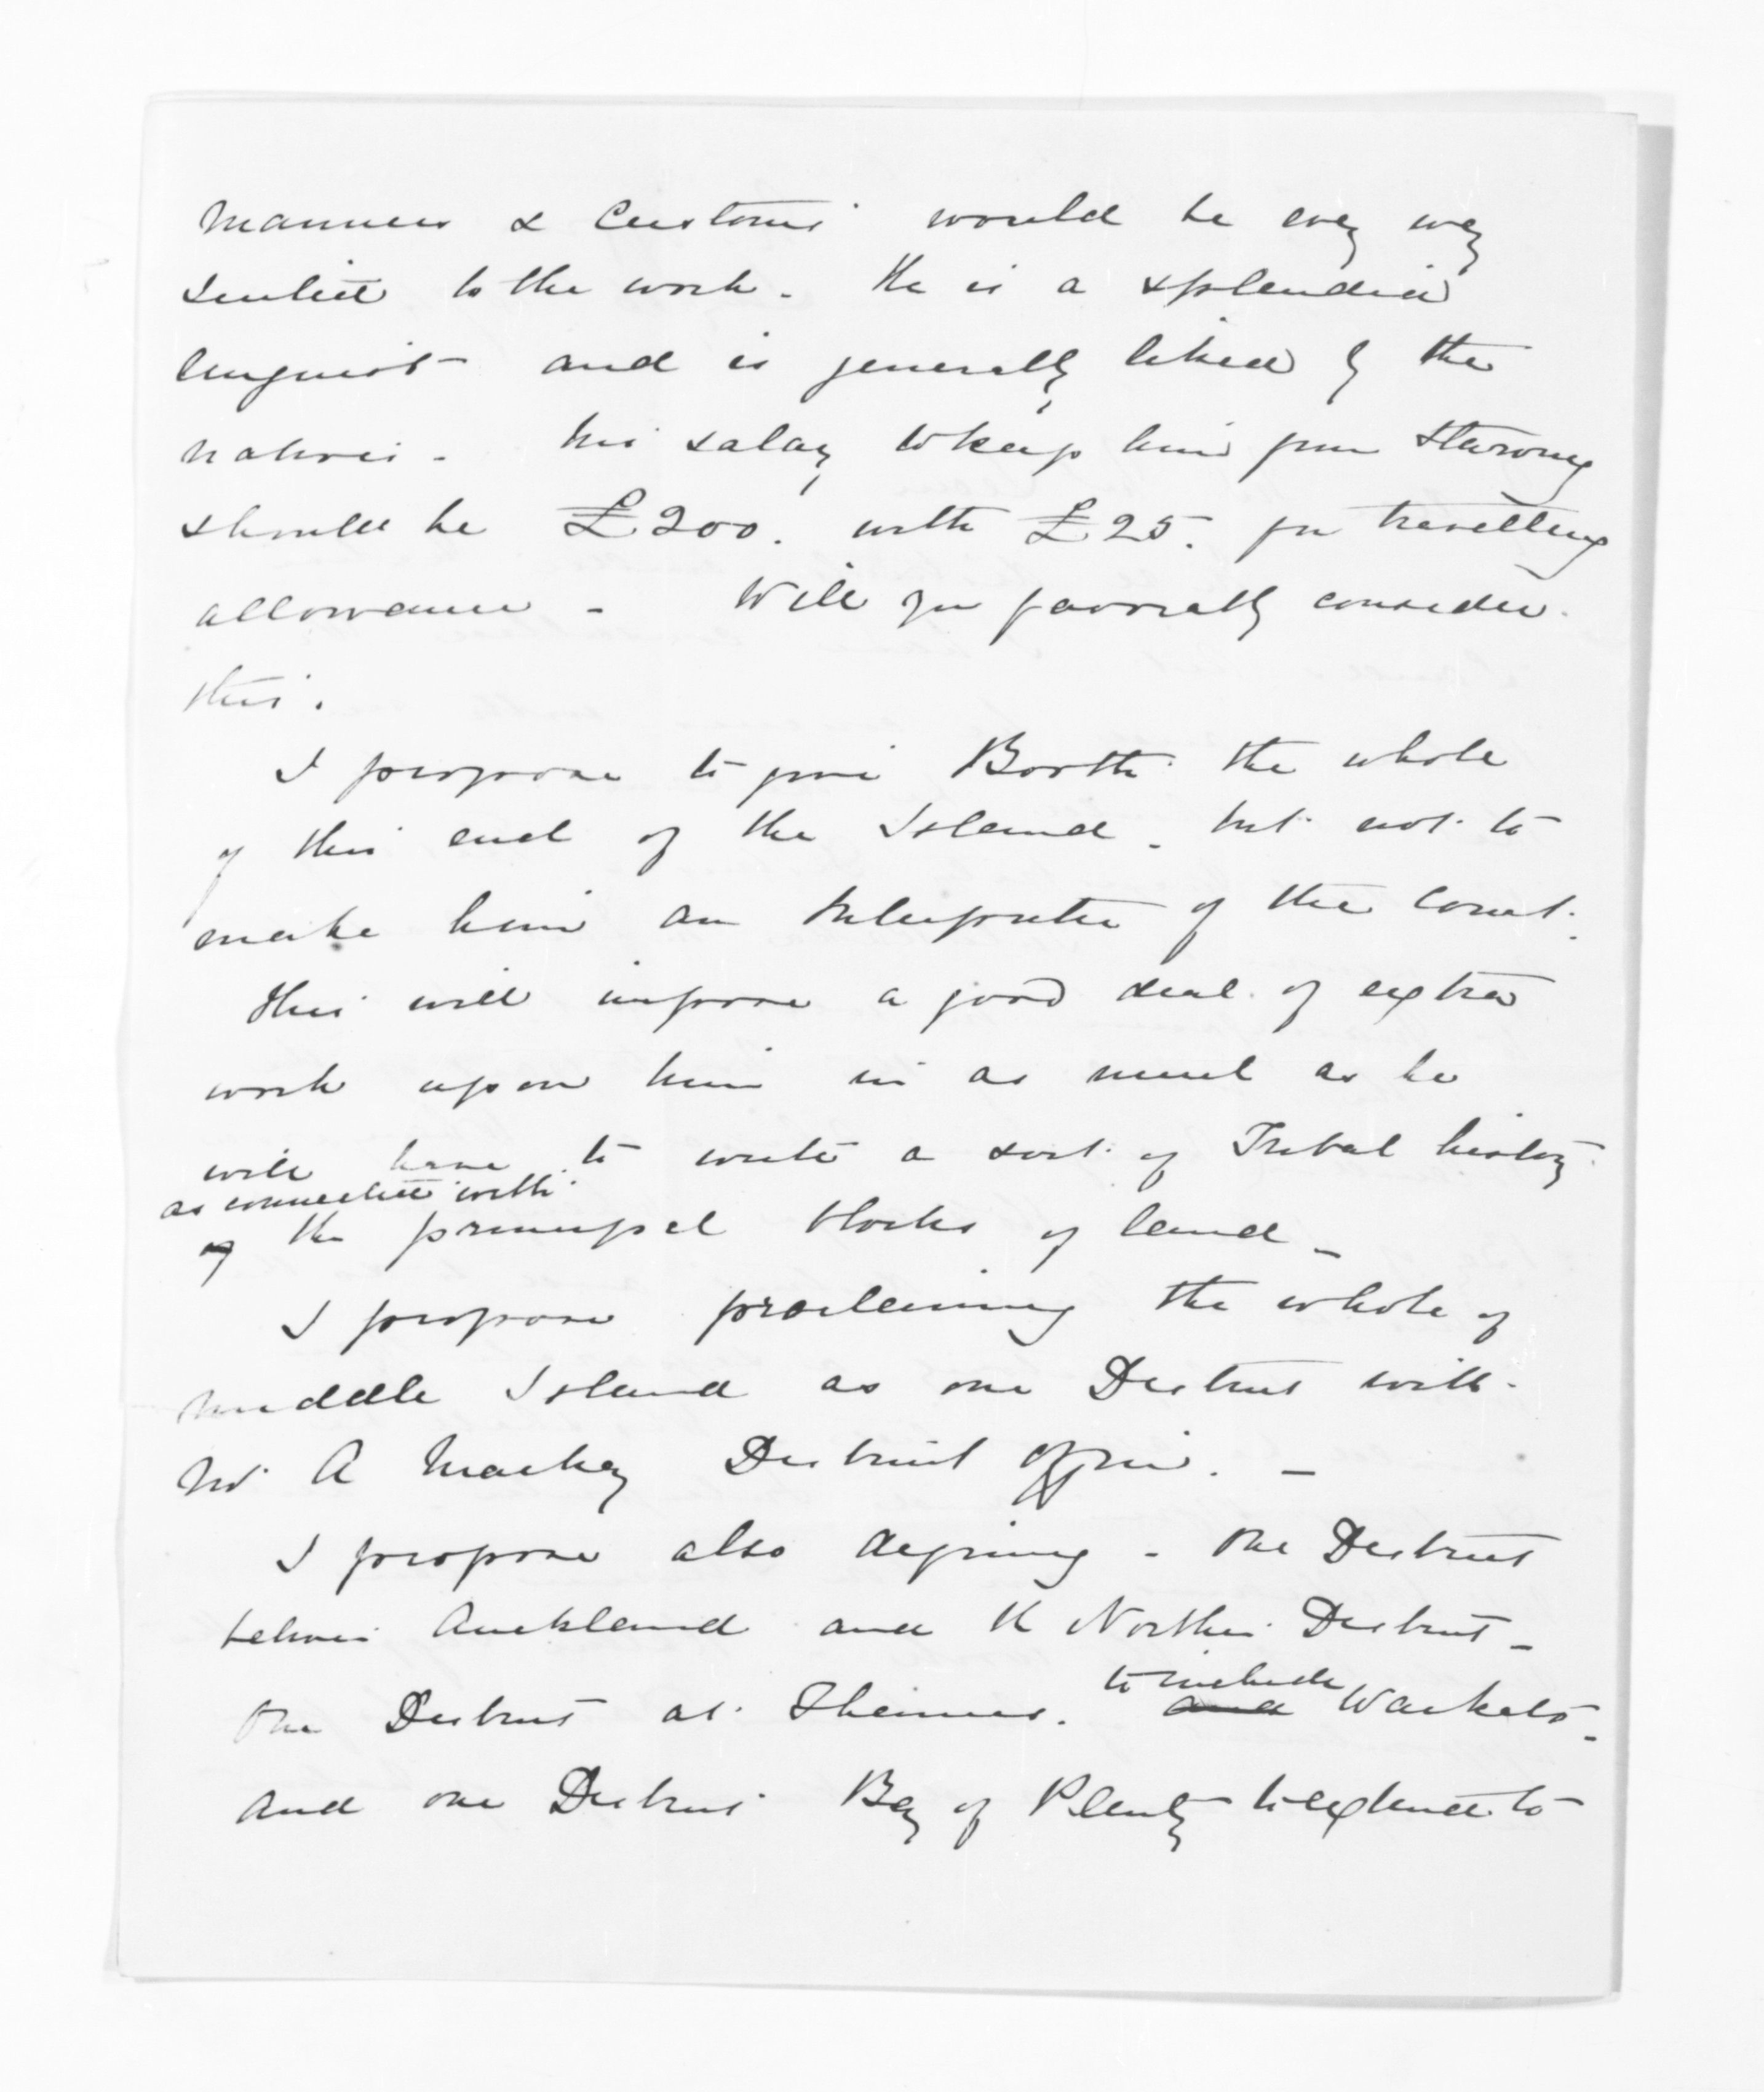 manners & Customs would be every way
suited to the work. He is a splendid
linguist and is generally liked by the
natives. His salary to keep him from starving
should be £200. with £25. for travelling
allowance - Will you favorably consider
this.
I propose to give Booth the whole
of this end of the Island. but not to
make him an Interpreter of the Court.
This will impose a good deal of extra
work upon him in as much as he
will have to write a sort of Tribal history
as connected with
of the principal blocks of land -
I propose proclaiming the whole of
Middle Island as one District with
Mr A Mackay District Officer. -
I propose also defining - One District
between Auckland and the Northern District -
One District at Thames. to include
and Waikato -
And one District Bay of Plenty to extend to